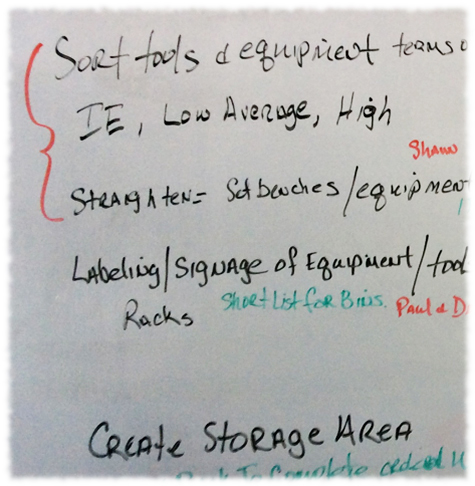 Sort tools & equipment teams
IE, Low Average, High
Shawn
Straighten = Set benches/equipmen
Labeling/Signage of Equipment/tool
Racks
Short List for Bins.
Paul & D
Create Storage Area
To Complete